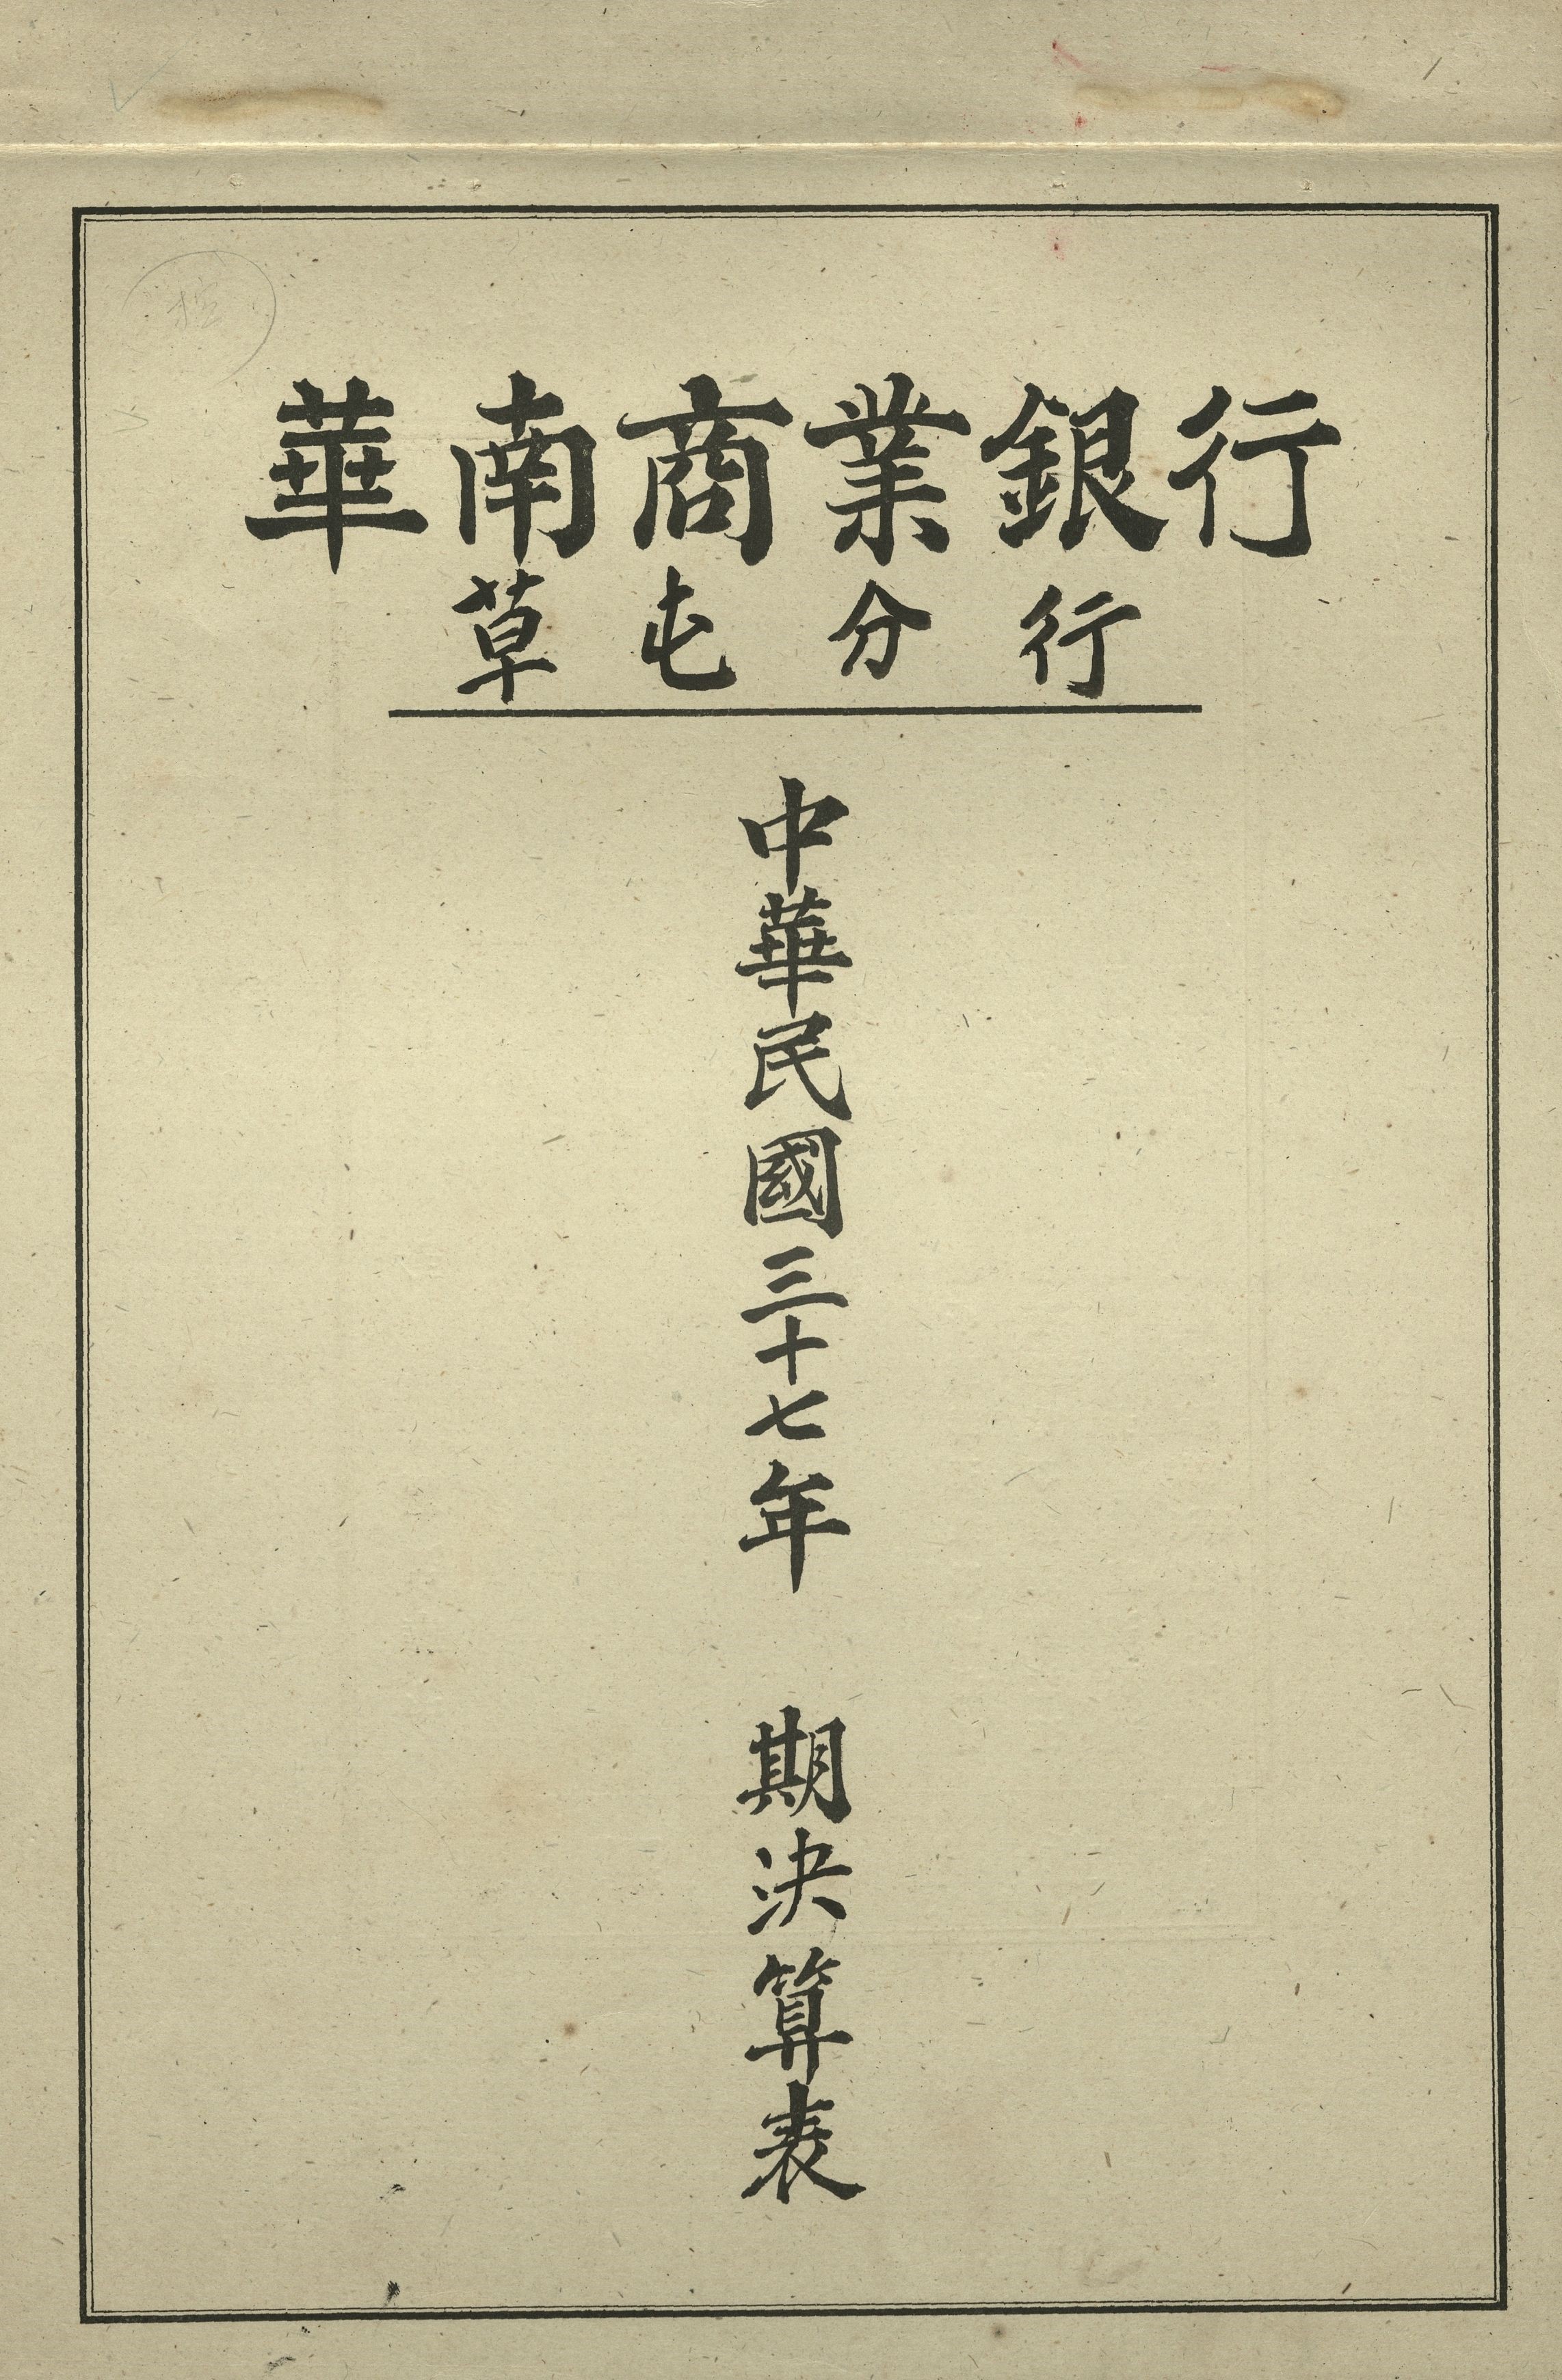 華南商業銀行
草屯分行
中華民國三十七年 期決算表